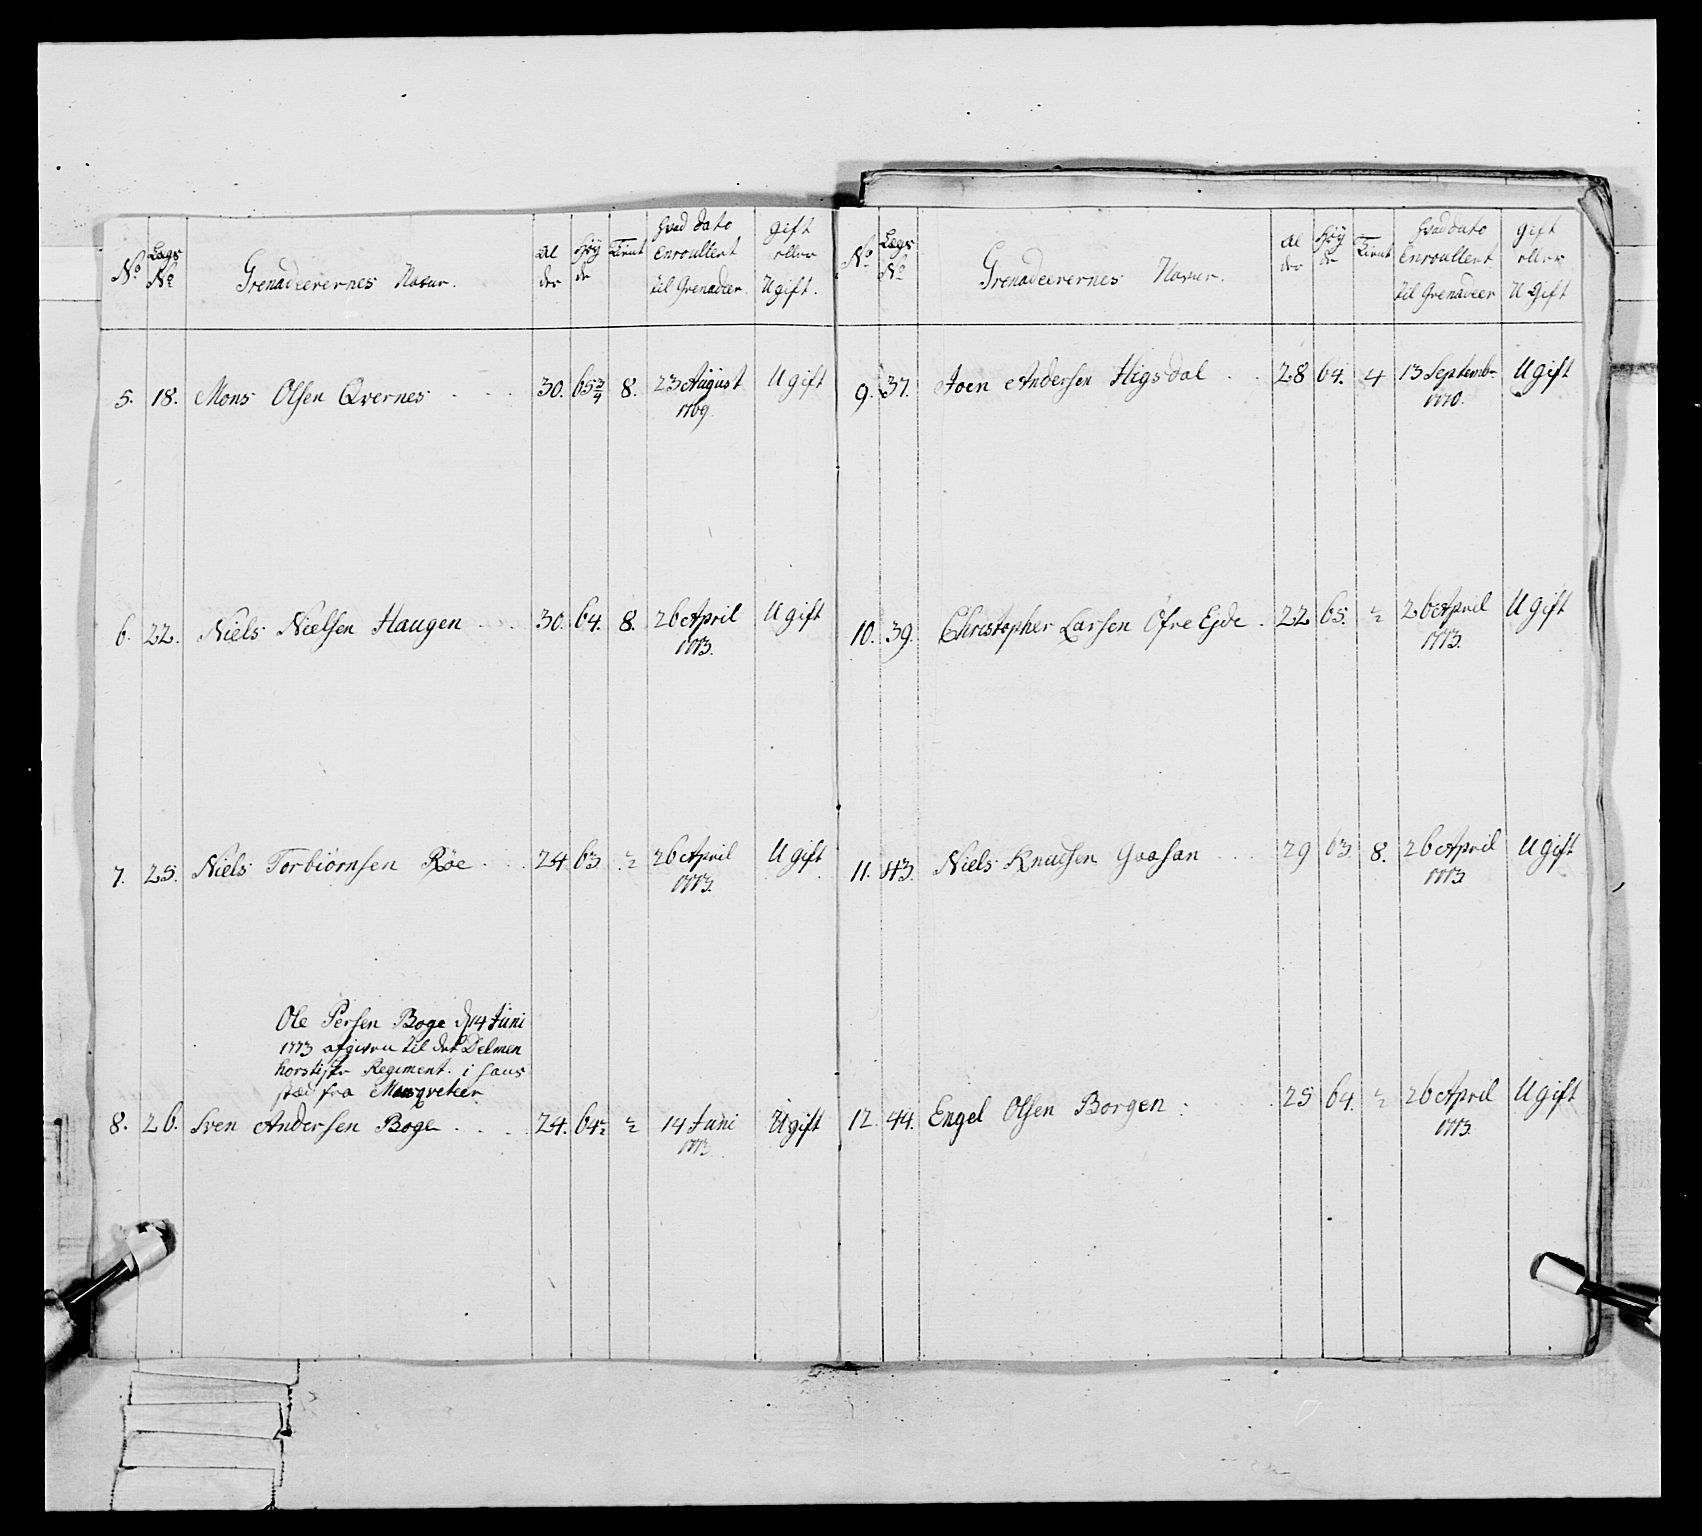 No
Lægs No
Grenadeerernes Navne.
Al der
Høy de
Tient
hvad dato Enroullert til Grenadeer
gift eller Ugift.
5. 18. Mons Olsen Qvernes 30. 65 3/4 8. 23 August 1769 Ugift
6. 22. Niels Nielsen Haugen 30. 64. 8. 26 April 1773. Ugift
7. 25. Niels Torbiørnsen Røe 24 63 ½ 26 April 1773. Ugift
Ole Persen Boge d 14 Juni
1773 afgiven til det Delmen
horstiske Regiment. i hans
sted fra Mousqveteer
8. 26. Sven Andersen Boge 24. 64½ ½ 14 Juni 1773 Ugift
No
Lægs No
Grenadeerernes Navne.
Al der
Høy de
Tient
hvad dato Enroullert til Grenadeer
gift eller Ugift
9. 37. Joen Andersen Higsdal 28 64. 4 13 Septembr 1770. Ugift
10. 39. Christopher Larsen Øfre Ejde 22 65. ½ 26 April 1773. Ugift
11. 43. Niels Knudsen Gaasan 29 63 8. 26 April 1773 Ugift
12. 44. Engel Olsen Borgen 25 64. ½ 26 April 1773. Ugift